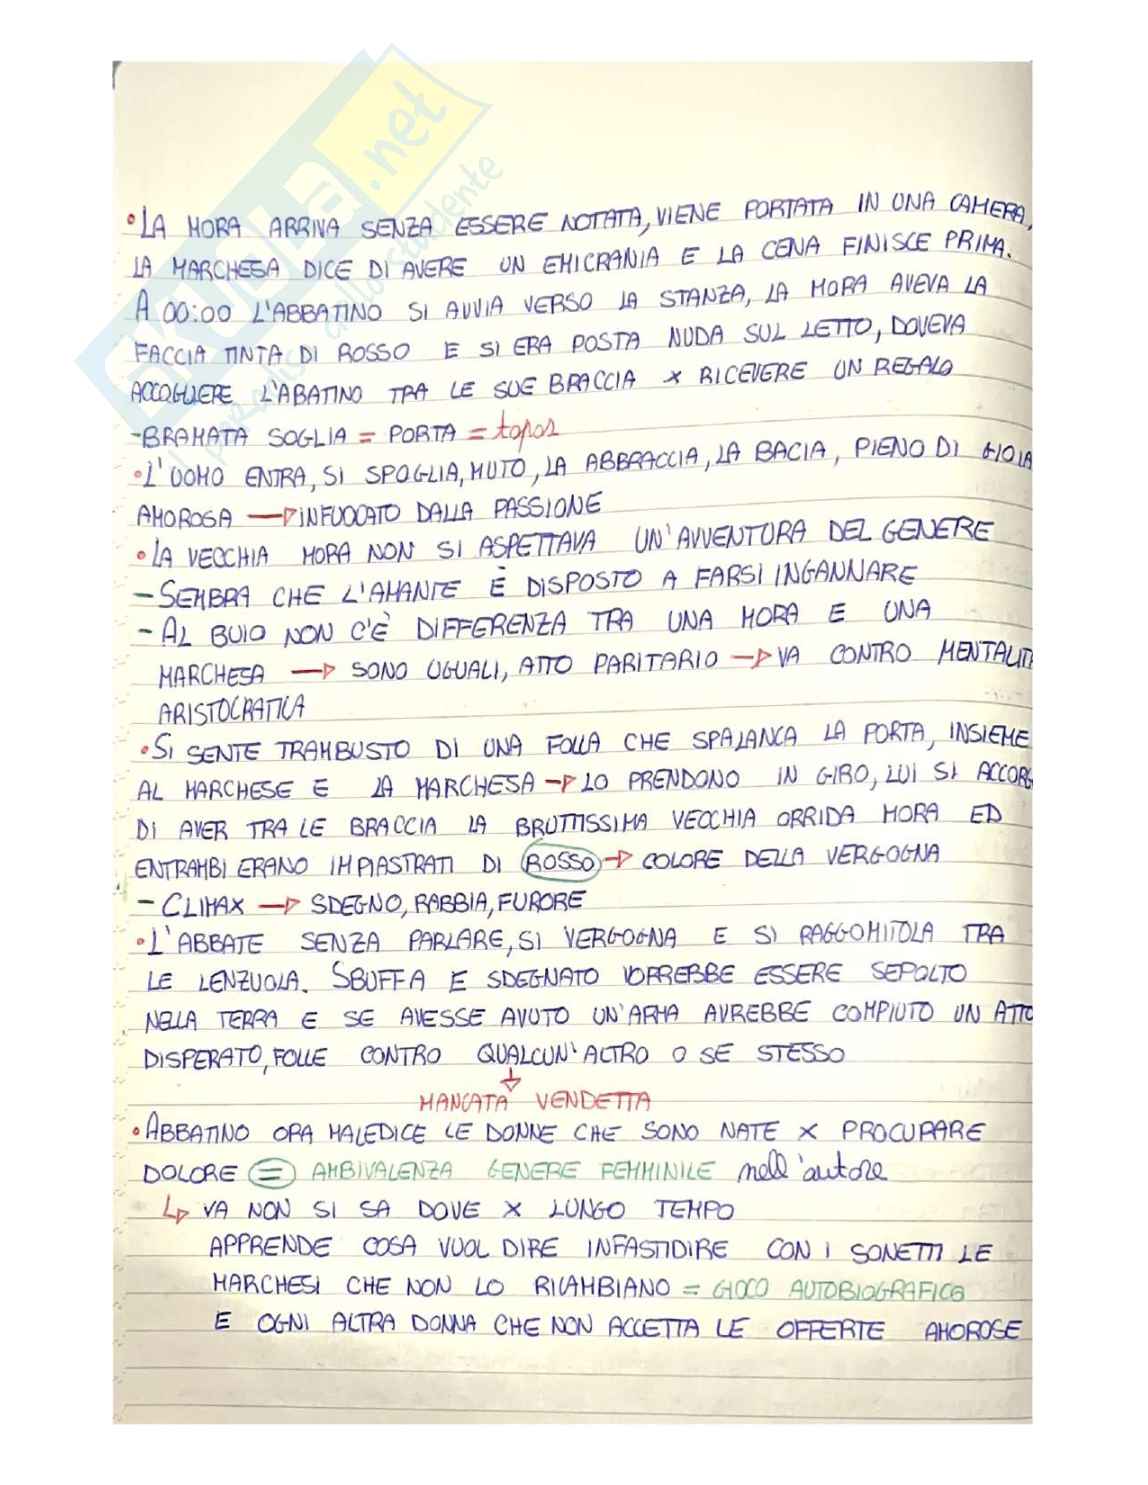 SKUOLA.net
•LA MORA ARRIVA SENZA ESSERE NOTATA, VIENE PORTATA IN UNA CAMERA,
LA MARCHESA DICE DI AVERE UN EMICRANIA E LA CENA FINISCE PRIMA.
A 00:00 L'ABBATINO SI AVVIA VERSO LA STANZA, LA MORA AVEVA LA
FACCIA TINTA DI ROSSO E SI ERA POSTA NUDA SUL LETTO, DOVEVA
ACCOGLIERE L'ABATINO TRA LE SUE BRACCIA x RICEVERE UN REGALO
-BRAMATA SOGLIA = PORTA = topos
•L'UOMO ENTRA, SI SPOGLIA, MUTO, LA ABBRACCIA, LA BACIA, PIENO DI GIOIA
AMOROSA → INFUOCATO DALLA PASSIONE
•LA VECCHIA MORA NON SI ASPETTAVA UN'AVVENTURA DEL GENERE
- SEMBRA CHE L'AMANTE È DISPOSTO A FARSI INGANNARE
- AL BUIO NON C'È DIFFERENZA TRA UNA MORA E UNA
MARCHESA → SONO UGUALI, ATTO PARITARIO → VA CONTRO MENTALIT
ARISTOCRATICA
•SI SENTE TRAMBUSTO DI UNA FOLLA CHE SPALANCA LA PORTA, INSIEME
AL MARCHESE E LA MARCHESA → LO PRENDONO IN GIRO, LUI SI ACCORG
DI AVER TRA LE BRACCIA LA BRUTTISSIMA VECCHIA ORRIDA MORA ED
ENTRAMBI ERANO IMPIASTRATI DI ROSSO → COLORE DELLA VERGOGNA
- CLIMAX → SDEGNO, RABBIA, FURORE
•L'ABBATE SENZA PARLARE, SI VERGOGNA E SI RAGGOMITOLA TRA
LE LENZUOLA. SBUFFA E SDEGNATO VORREBBE ESSERE SEPOLTO
NELLA TERRA E SE AVESSE AVUTO UN'ARMA AVREBBE COMPIUTO UN ATTO
DISPERATO, FOLLE CONTRO QUALCUN'ALTRO O SE STESSO
↓
MANCATA VENDETTA
•ABBATINO ORA MALEDICE LE DONNE CHE SONO NATE x PROCURARE
DOLORE = AMBIVALENZA GENERE FEMMINILE nell'autore
↳ VA NON SI SA DOVE x LUNGO TEMPO
APPRENDE COSA VUOL DIRE INFASTIDIRE CON I SONETTI LE
MARCHESI CHE NON LO RICAMBIANO = GIOCO AUTOBIOGRAFICO
E OGNI ALTRA DONNA CHE NON ACCETTA LE OFFERTE AMOROSE